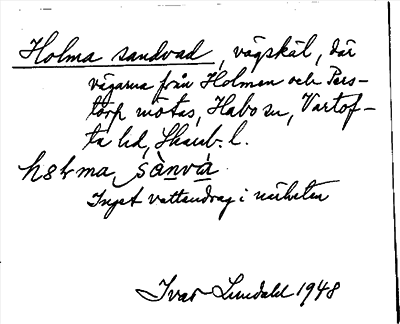 Holma sandvad, vägskäl, där
vägarna från Holmen och Pers-
torp mötas, Habo sn, Vartof-
ta hd, Skarab. l.
hɔlma sànva
Inget vattendrag i närheten
Ivar Lundahl 1948